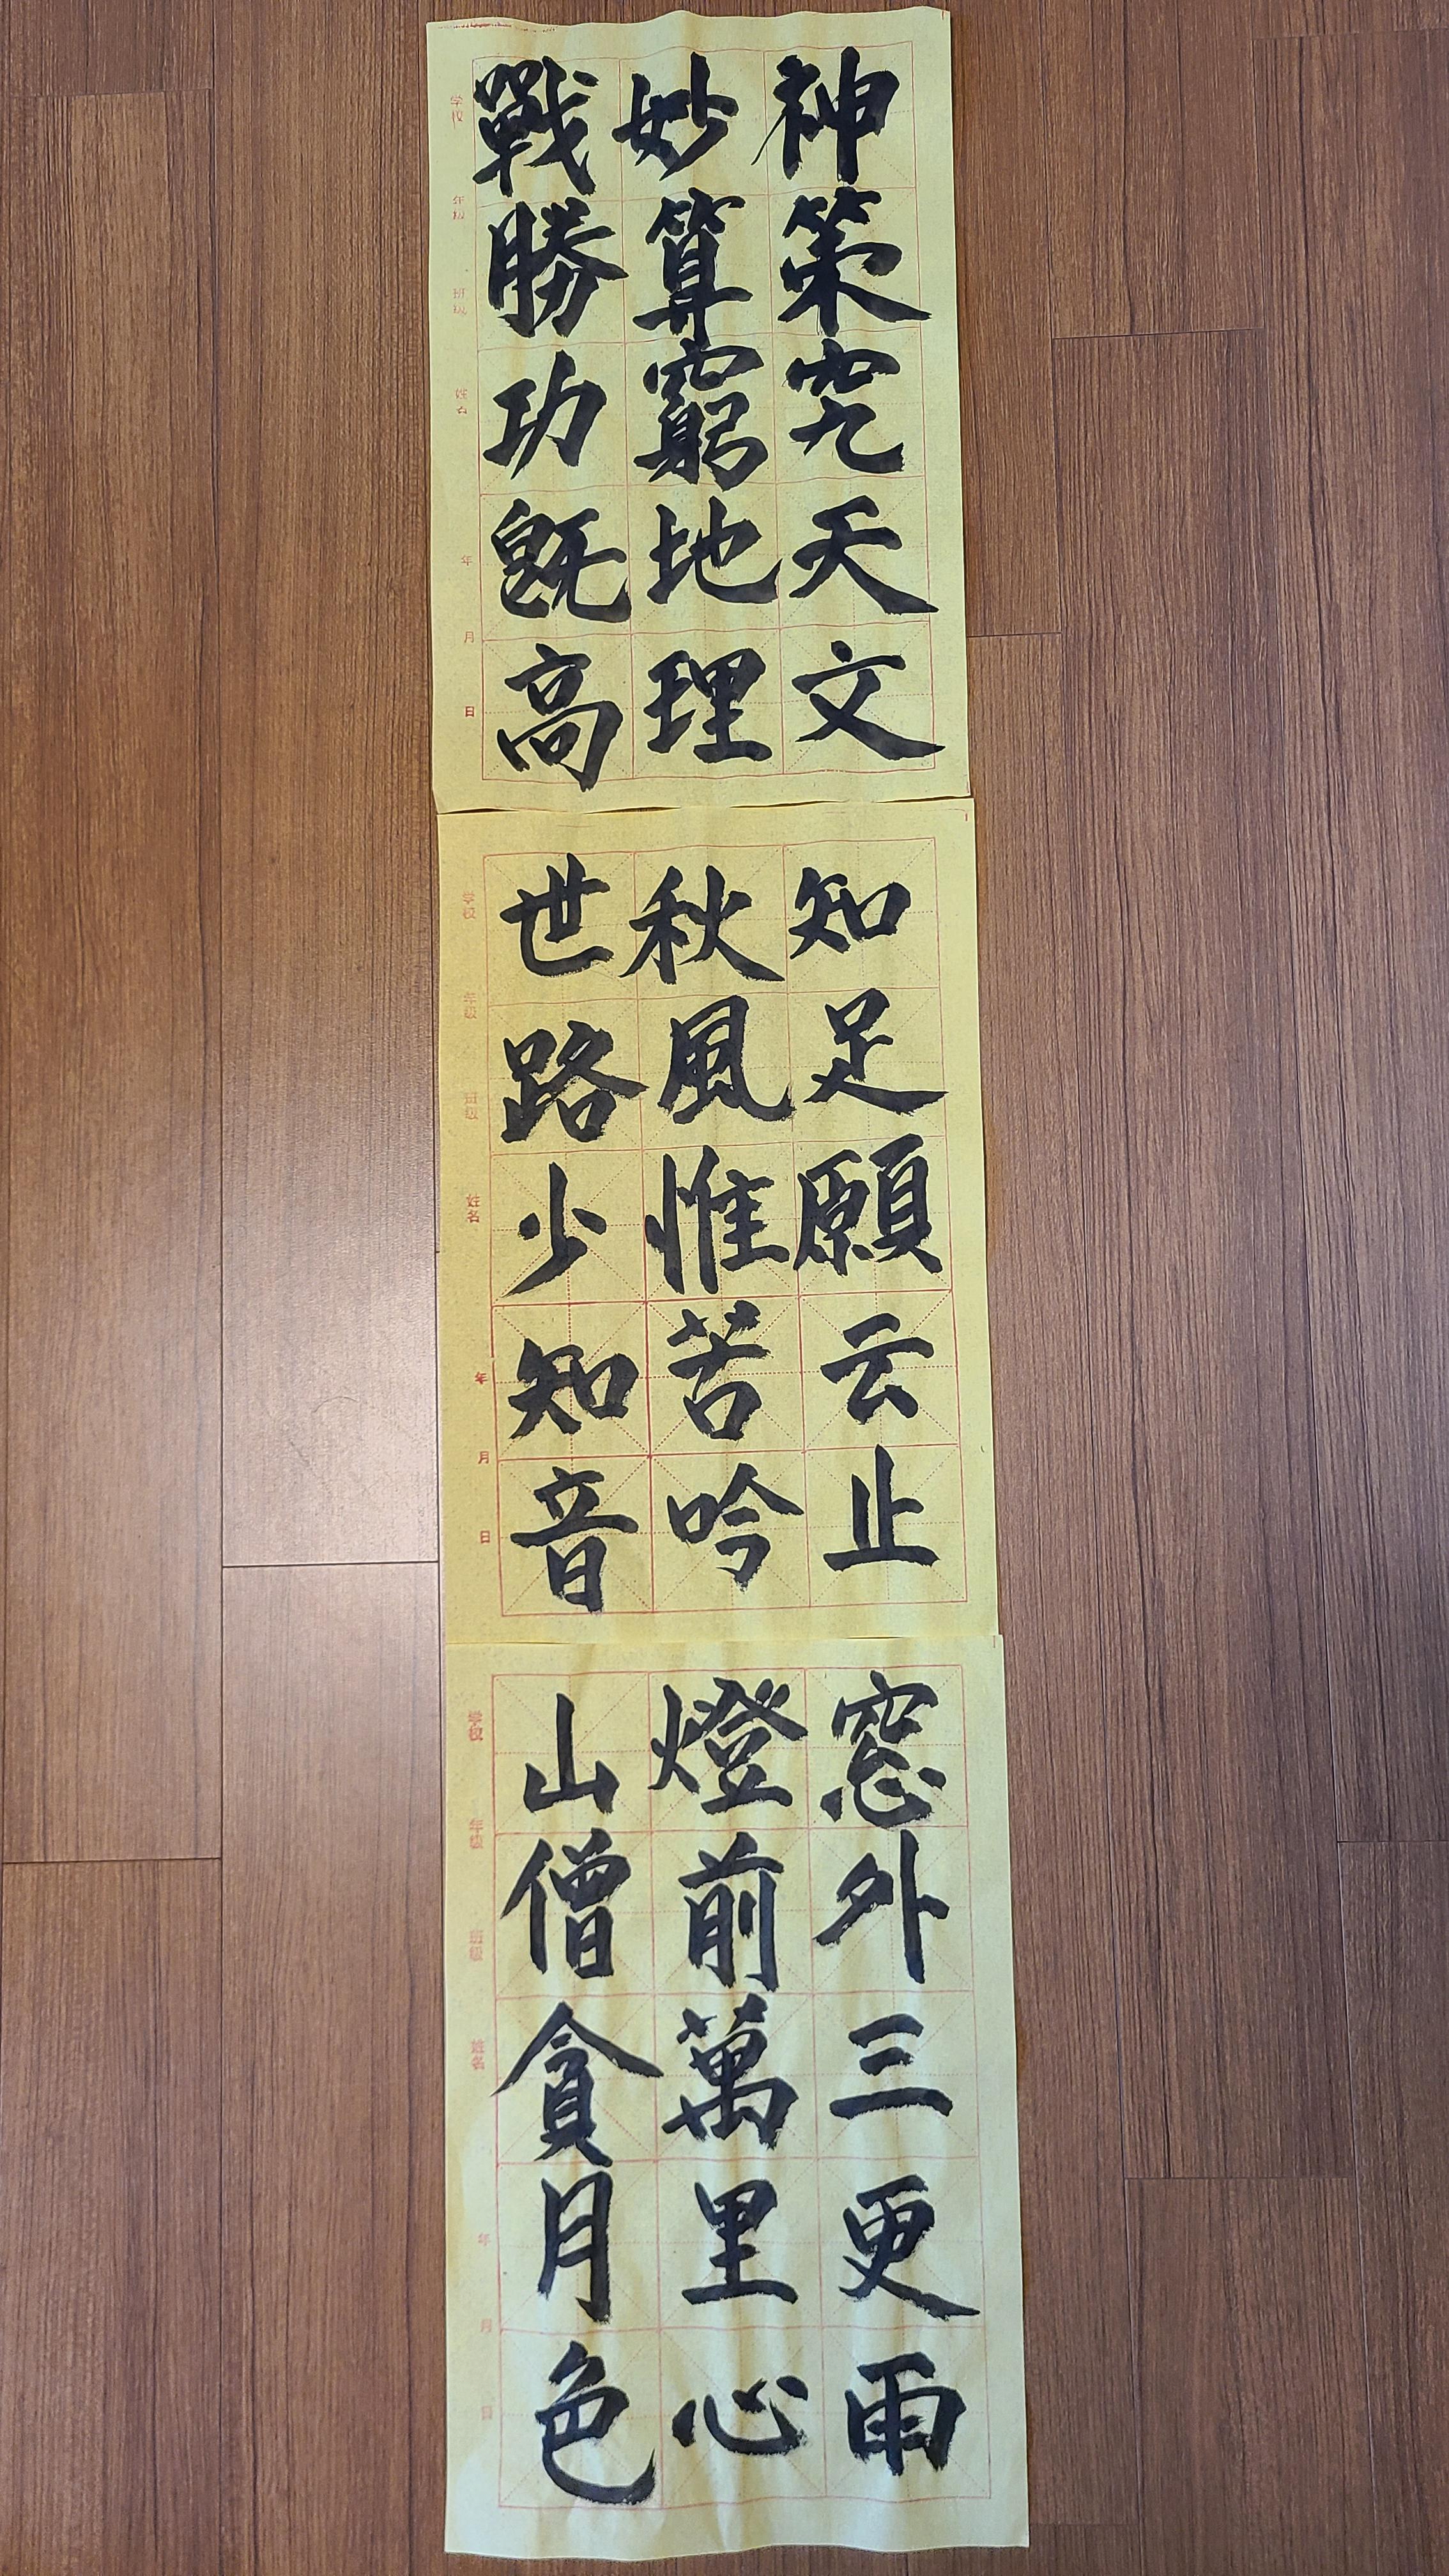 神策究天文
妙算窮地理
戰勝功旣高
知足願云止
秋風惟苦吟
世路少知音
窓外三更雨
燈前萬里心
山僧貪月色
学校
年级
班级
姓名
年
月
日
学校
年级
班级
姓名
年
月
日
学校
年级
班级
姓名
年
月
日